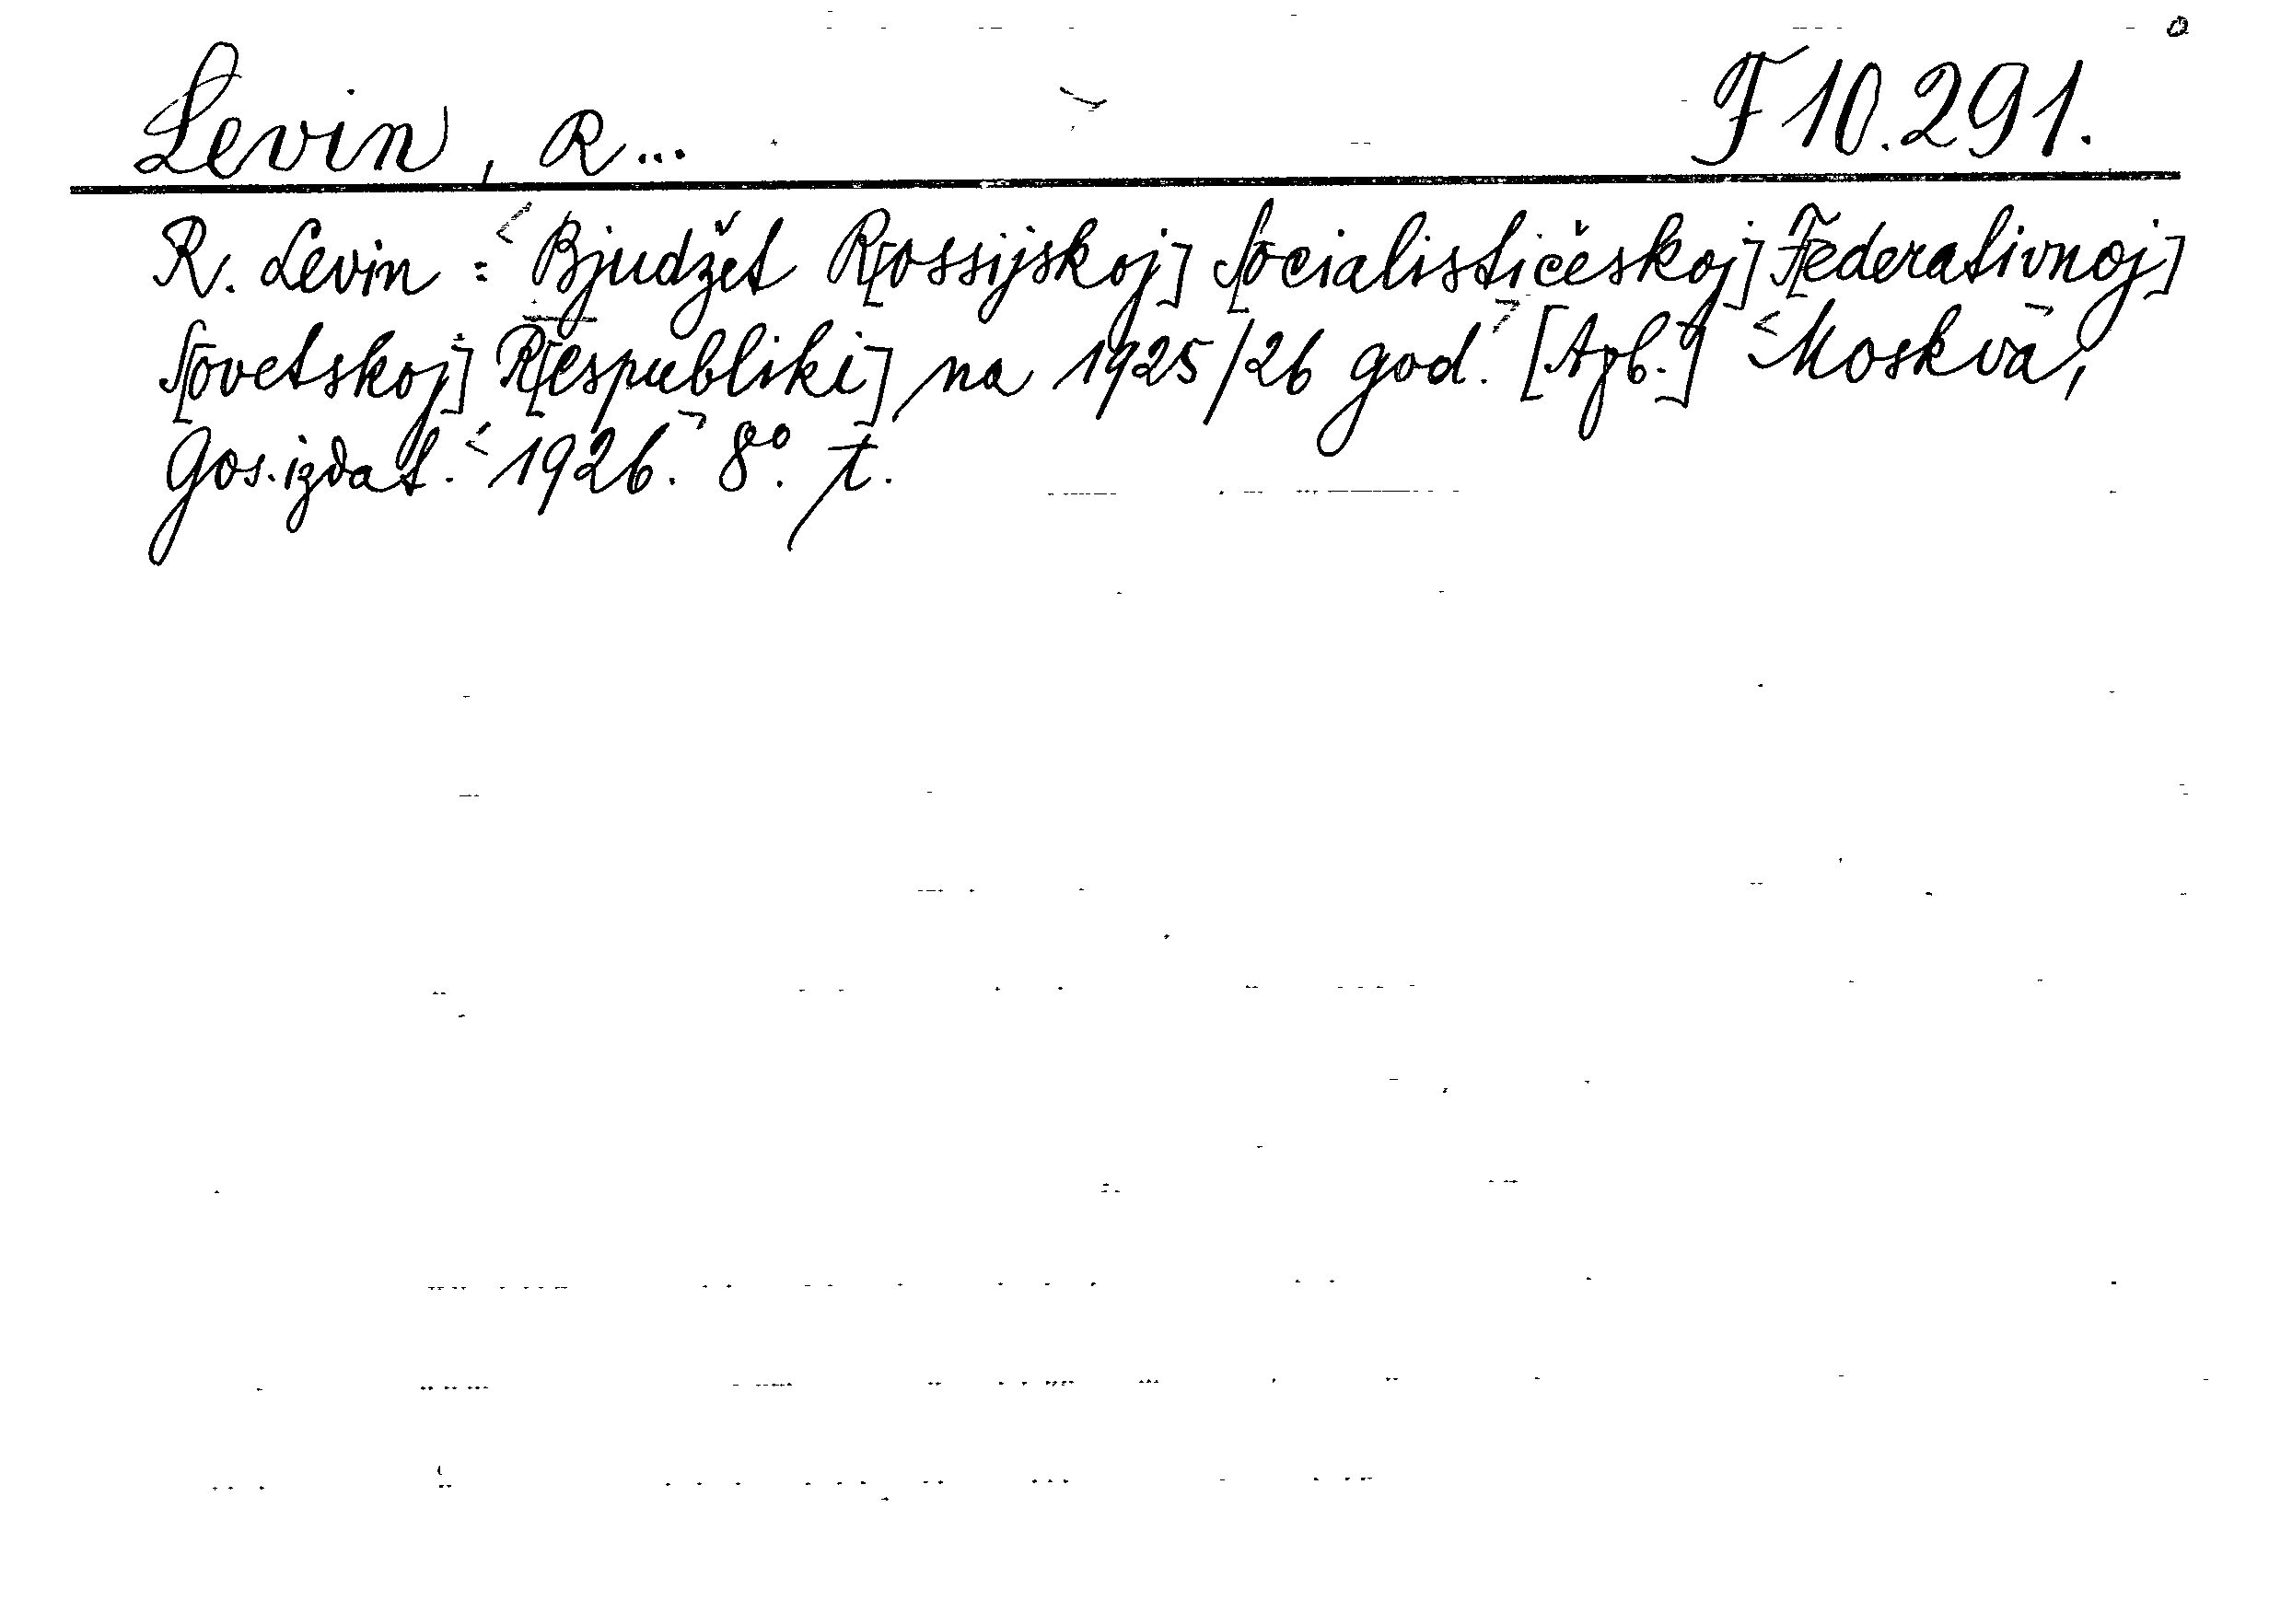 Levin, R... F 10.291.
R. Levin: Bjudžet R[ossijskoj] S[ocialističeskoj] F[ederativnoj]
S[ovetskoj] R[espubliki] na 1925/26 god. [Agb.] Moskva,
Gos. izdat. 1926. 8°. t.